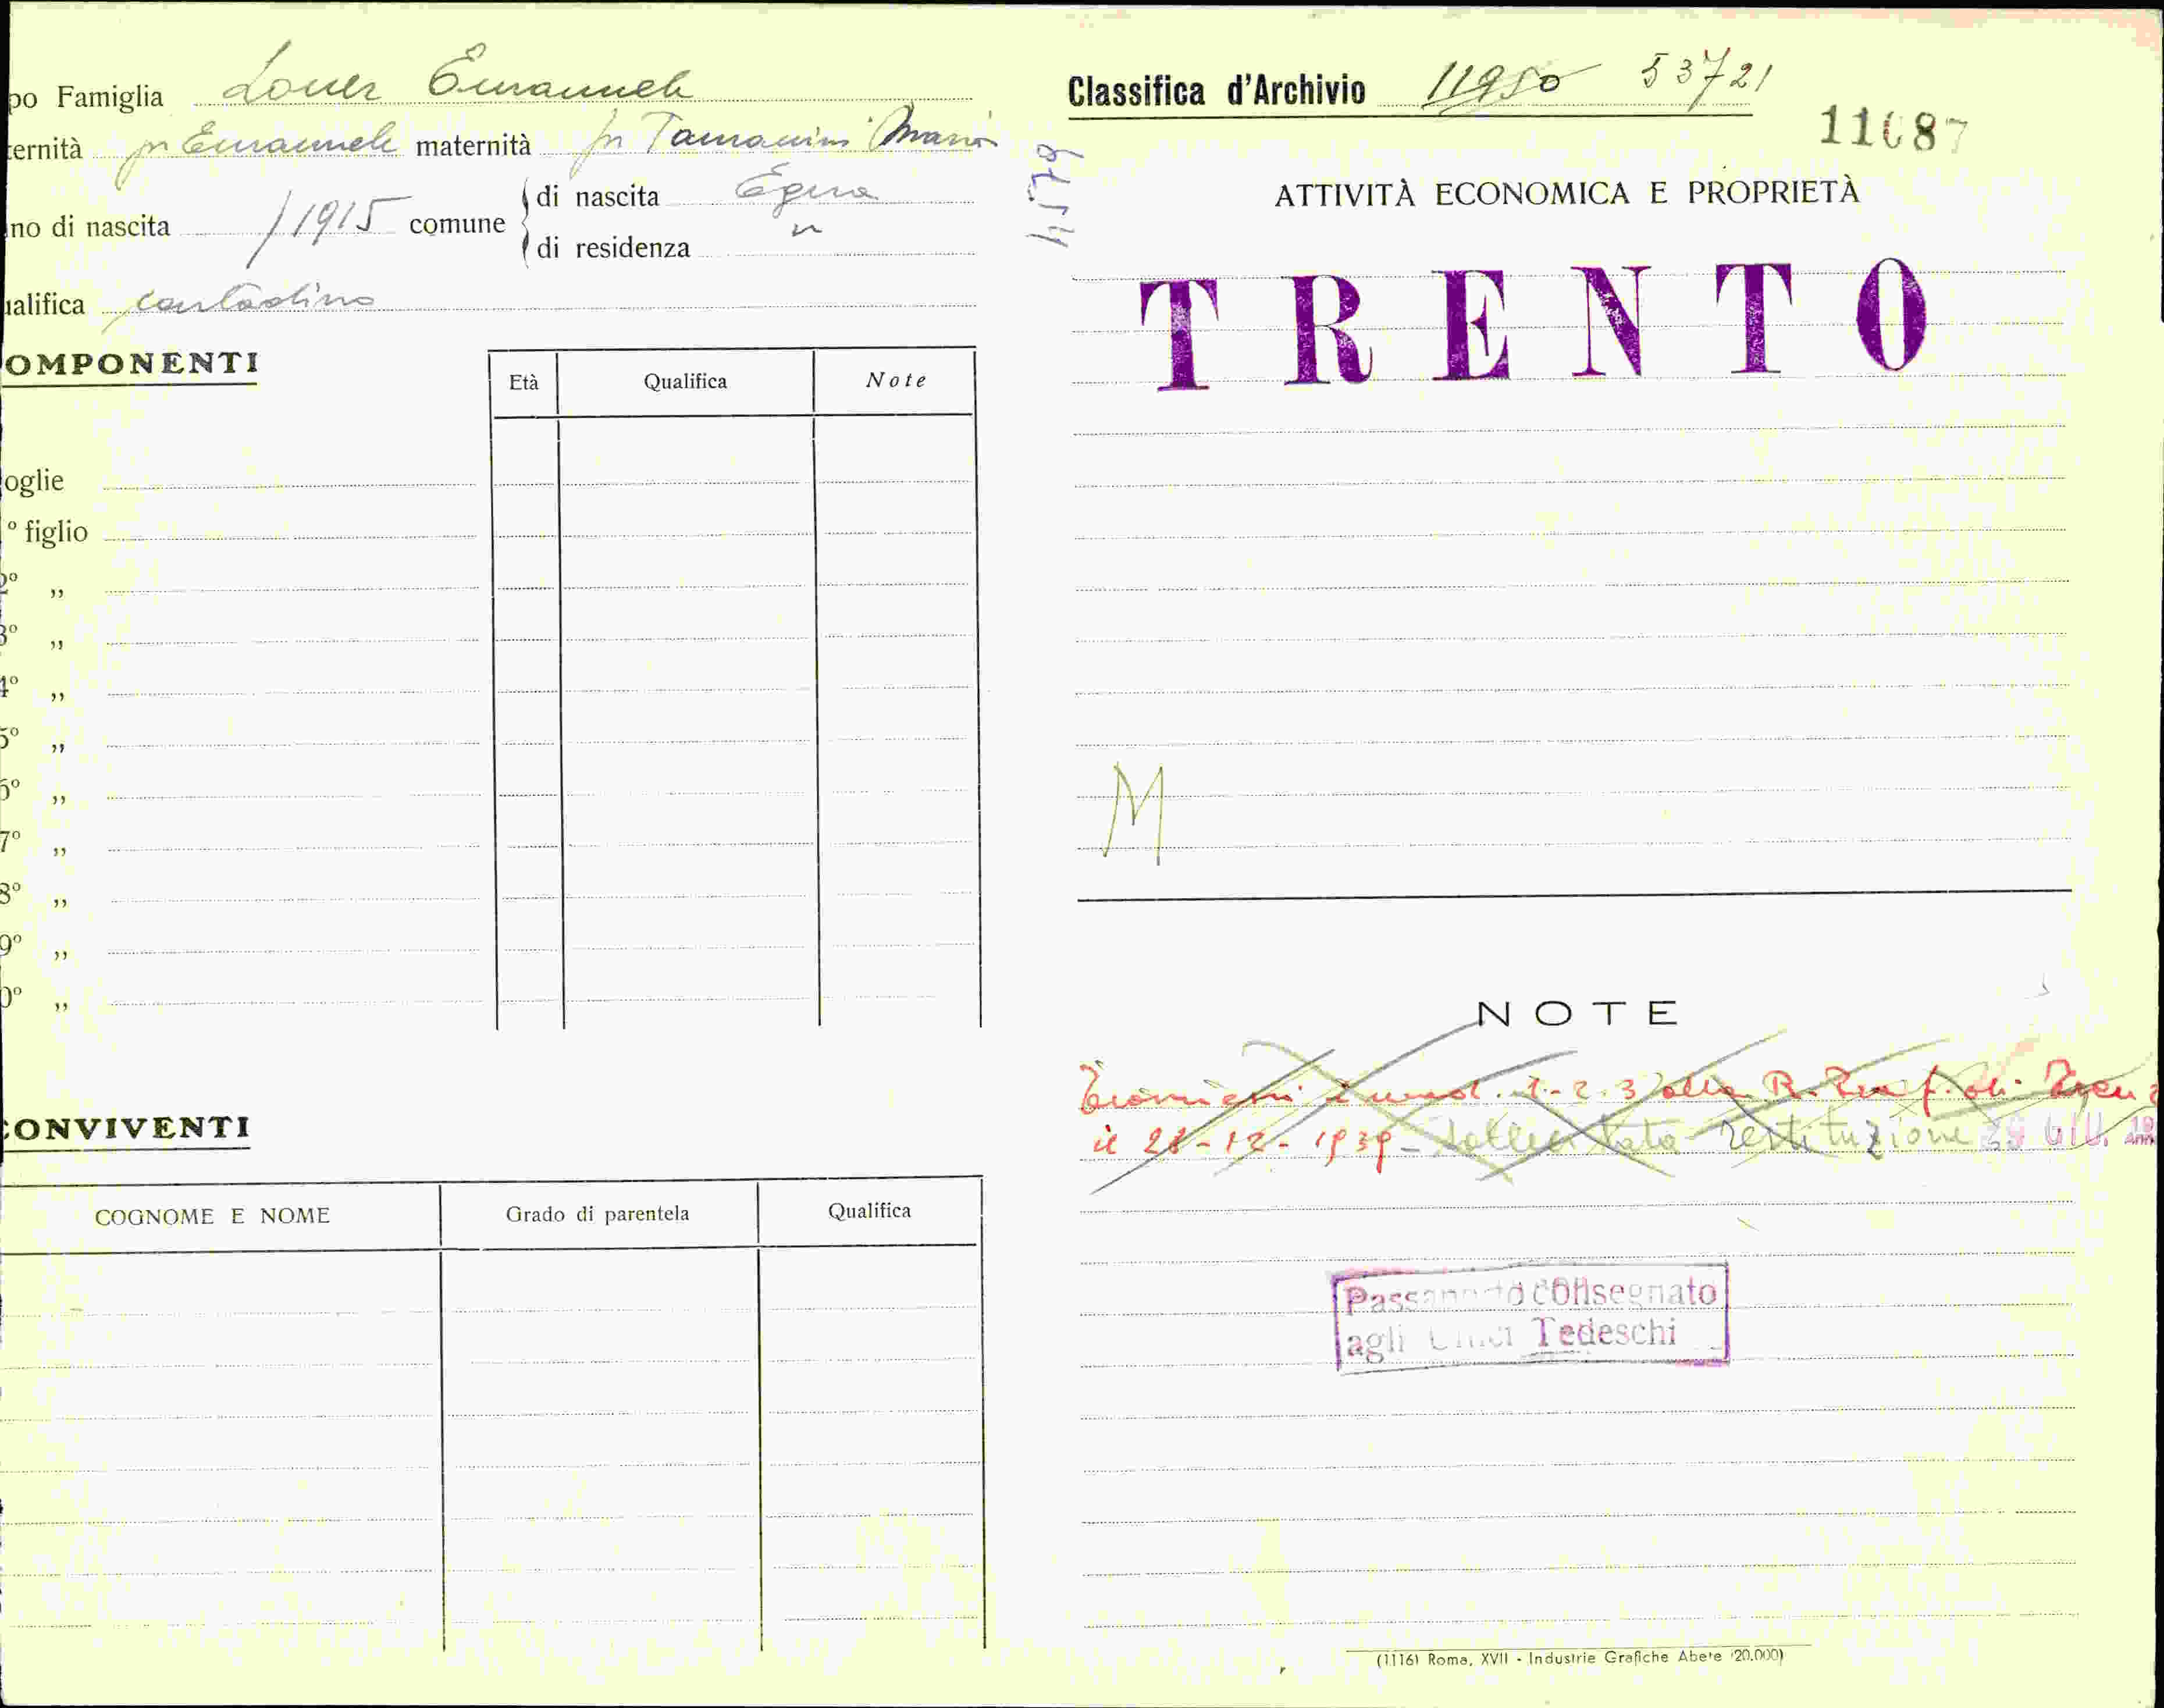 po Famiglia Louer Emanuele
ternità fu Emanuele maternità fu Tamanini Maria
no di nascita /1915 comune
di nascita Egna
di residenza "
ualifica contadino
OMPONENTI
Età Qualifica Note
oglie
° figlio
2° ,,
3° ,,
4° ,,
5° ,,
6° ,,
7° ,,
8° ,,
9° ,,
0° ,,
CONVIVENTI
COGNOME E NOME Grado di parentela Qualifica
Classifica d'Archivio 11950 53721
11687
4579
ATTIVITÀ ECONOMICA E PROPRIETÀ
TRENTO
M
NOTE
i mod. 1-2-3 alla R. Pref. di
il 28-12-1939 - Sollecitata restituzione GIU.
Passaporto consegnato
agli Uffici Tedeschi
(1116) Roma, XVII - Industrie Grafiche Abete (20.000)